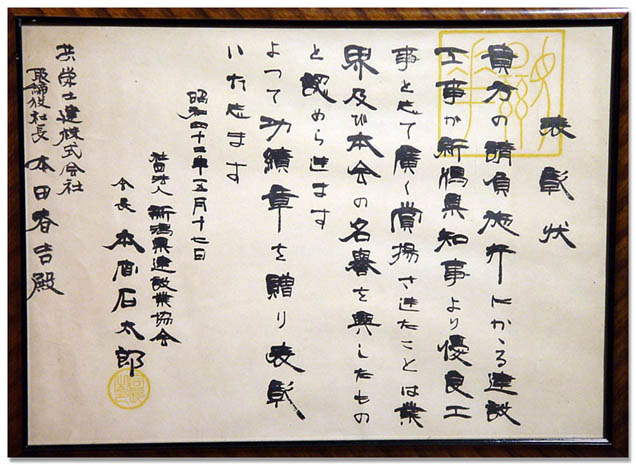 表彰状
貴方の請負施行にかゝる建設
工事が新潟県知事より優良工
事として廣く賞揚されたことは業
界及び本会の名誉を興したもの
と認められます
よって功績章を贈り表彰
いたします
昭和四十二年五月十七日
社団法人 新潟県建設業協会
会長 本間石太郎
共栄土建株式会社
取締役社長 本田春吉殿